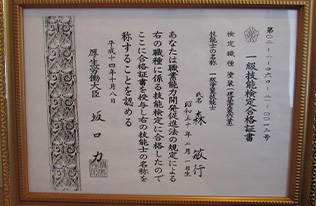 一級技能検定合格証書
検定職種 塗装(建築塗装作業)
技能士の名称 一級塗装技能士
氏名 森 敏行
あなたは職業能力開発促進法の規定による
右の職種に係る技能検定に合格したので
ここに合格証書を授与し右の技能士の名称を
称することを認める
平成十四年十月八日
厚生労働大臣 坂口 力